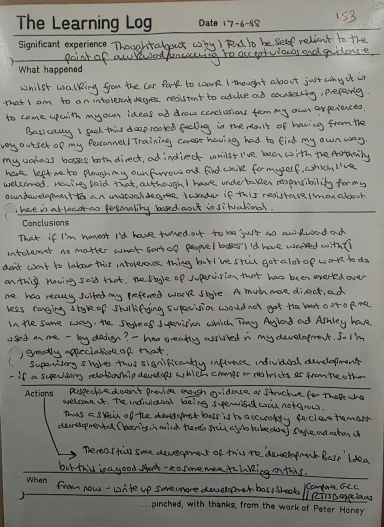 The Learning Log Date 17-6-88 153
Significant experience Thought about why I tend to be self reliant to the
point of awkward/uncaring to accept views and guidance
What happened
Whilst walking from the car park to work I thought about just why it is
that I am to an intolerant degree resistant to advice and counselling, preferring
to come up with my own ideas and draw conclusions from my own experiences.
Basically I feel this deep rooted feeling is the result of having from the
very outset of my Personnel/Training career having had to find my own way.
my various bosses both direct, and indirect whilst I've been with the Authority
have left me to plough my own furrow and find work for myself, which I've
welcomed. Having said that, although I have undertaken responsibility for my
own development to an unusual degree I wonder if this resistance I moan about
here is at least as personality based as it is situational.
Conclusions
That if I'm honest I'd have turned out to be just as awkward and
intolerant no matter what sort of people (bosses) I'd have worked with. I
don't want to labour this intolerance thing but I've still got a lot of work to do
on this! Having said that, the style of supervision that has been exerted over
me has really suited my preferred work style. A much more direct, and
less ranging style of stultifying supervision would not get the best out of me.
In the same way, the style of supervision which Tony and Ashley have
used on me - by design? - has greatly assisted in my development. So I'm
greatly appreciative of that.
Supervisory styles thus significantly influence individual development
- if a supervisory relationship develops which cramps or restricts or from the other
Actions perspective doesn't provide enough guidance or structure for those who
welcome it. The individual being supervised will not grow.
Thus a skill of the development boss is to accurately declare the most
developmental (bearing in mind there's still a job to be done) style and action it
There is still some development of this the 'development Boss' idea
but this is a good start - do some more thinking on this.
When From now - write up some more development boss sheets Compare GCC
.... pinched, with thanks, from the work of Peter Honey